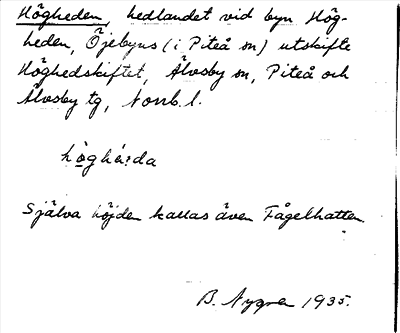 Högheden, hedlandet vid byn Hög-
heden, Öjebyns (i Piteå sn) utskifte
Höghedskiftet, Älvsby sn, Piteå och
Älvsby tg, Norrb. l.
hö̱ghé:da
Själva höjden kallas även Fågelhatten.
B. Nygren 1935.